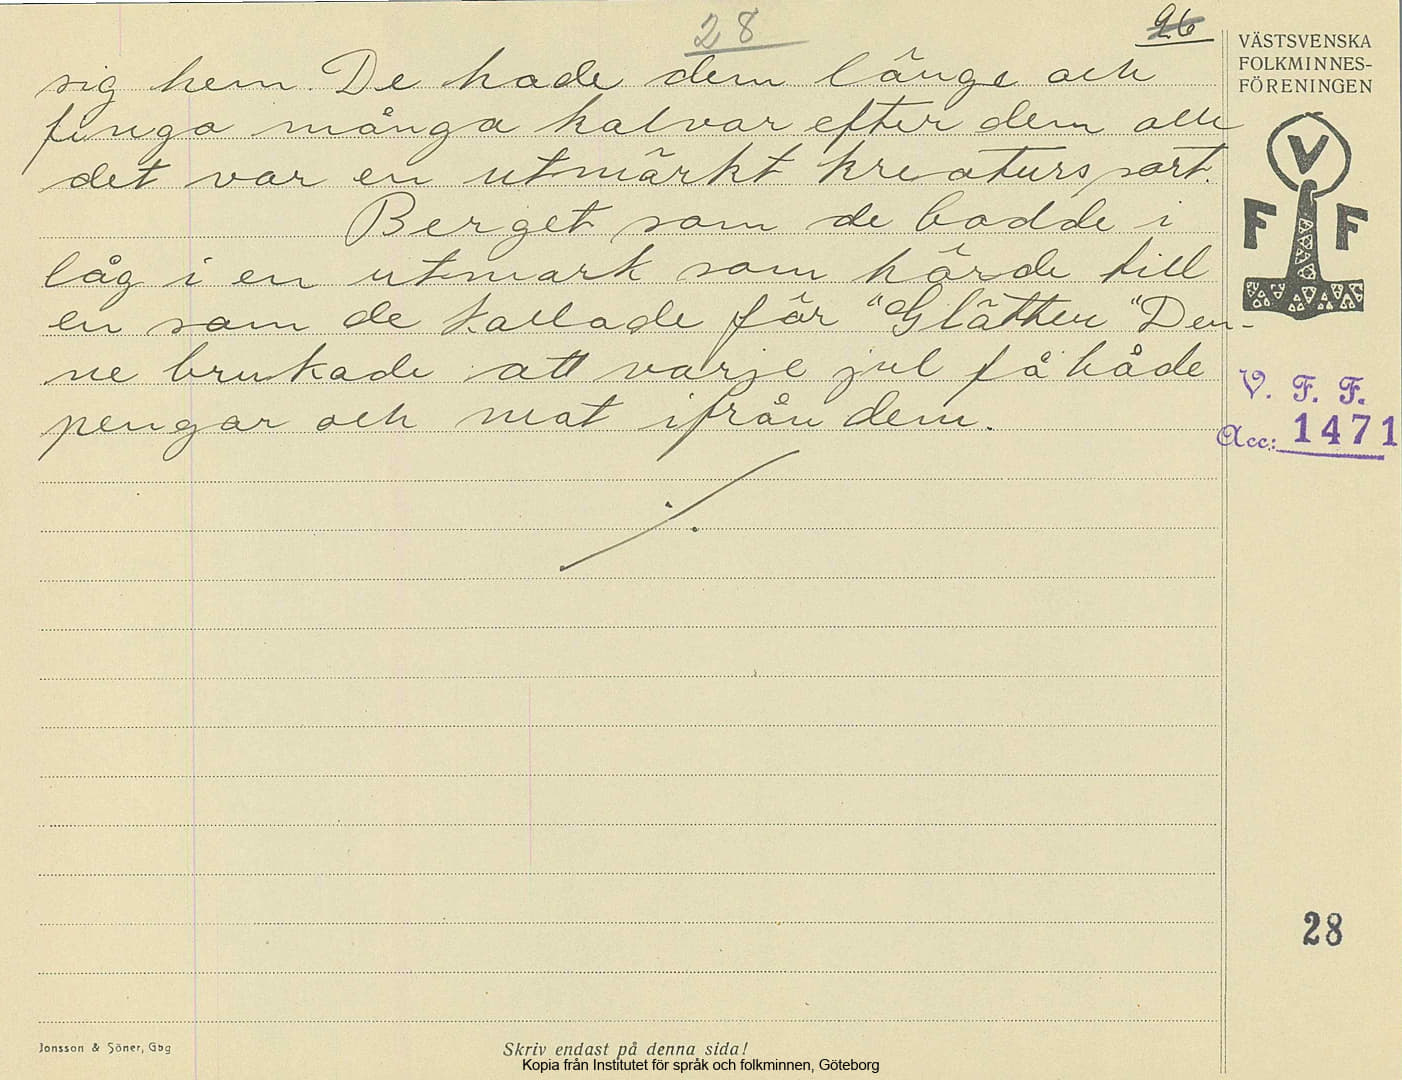 28
26
sig hem. De hade dem länge och
fingo många kalvar efter dem och
det var en utmärkt kreaturs sort.
Berget som de bodde i
låg i en utmark som hörde till
en som de kallade för "Glätten" Den-
ne brukade att varje jul få både
pengar och mat ifrån dem.
VÄSTSVENSKA
FOLKMINNES-
FÖRENINGEN
V
F F
V. F. F.
Acc: 1471
28
Jonsson & Söner, Gbg
Skriv endast på denna sida!
Kopia från Institutet för språk och folkminnen, Göteborg